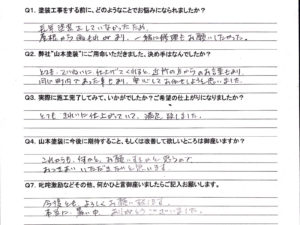 Q1. 塗装工事をする前に、どのようなことでお悩みになられましたか?
長年塗装をしていなかったため、
屋根から雨もれがあり、一緒に修理をお願いしたかった。
Q2. 弊社"山本塗装"にご用命いただきました。決め手はなんでしたか?
とても、ていねいに仕上げてくれると、近所の方からのお言葉もあり、
同じ町内であった事もあり、安心してお任せしようと思いました。
Q3. 実際に施工完了してみて、いかがでしたか?ご希望の仕上がりになりましたか?
とてもきれいに仕上がっていて、満足致しました。
Q4. 山本塗装に今後に期待すること、もしくは改善して欲しいところは御座いますか?
これからも、何かと、お願いするかと思うので
おつきあいいただきたいと思います。
Q7. 叱咤激励などその他、何かひと言御座いましたらご記入お願いします。
今後とも、よろしくお願い致します。
本当に、暑い中、ありがとうございました。